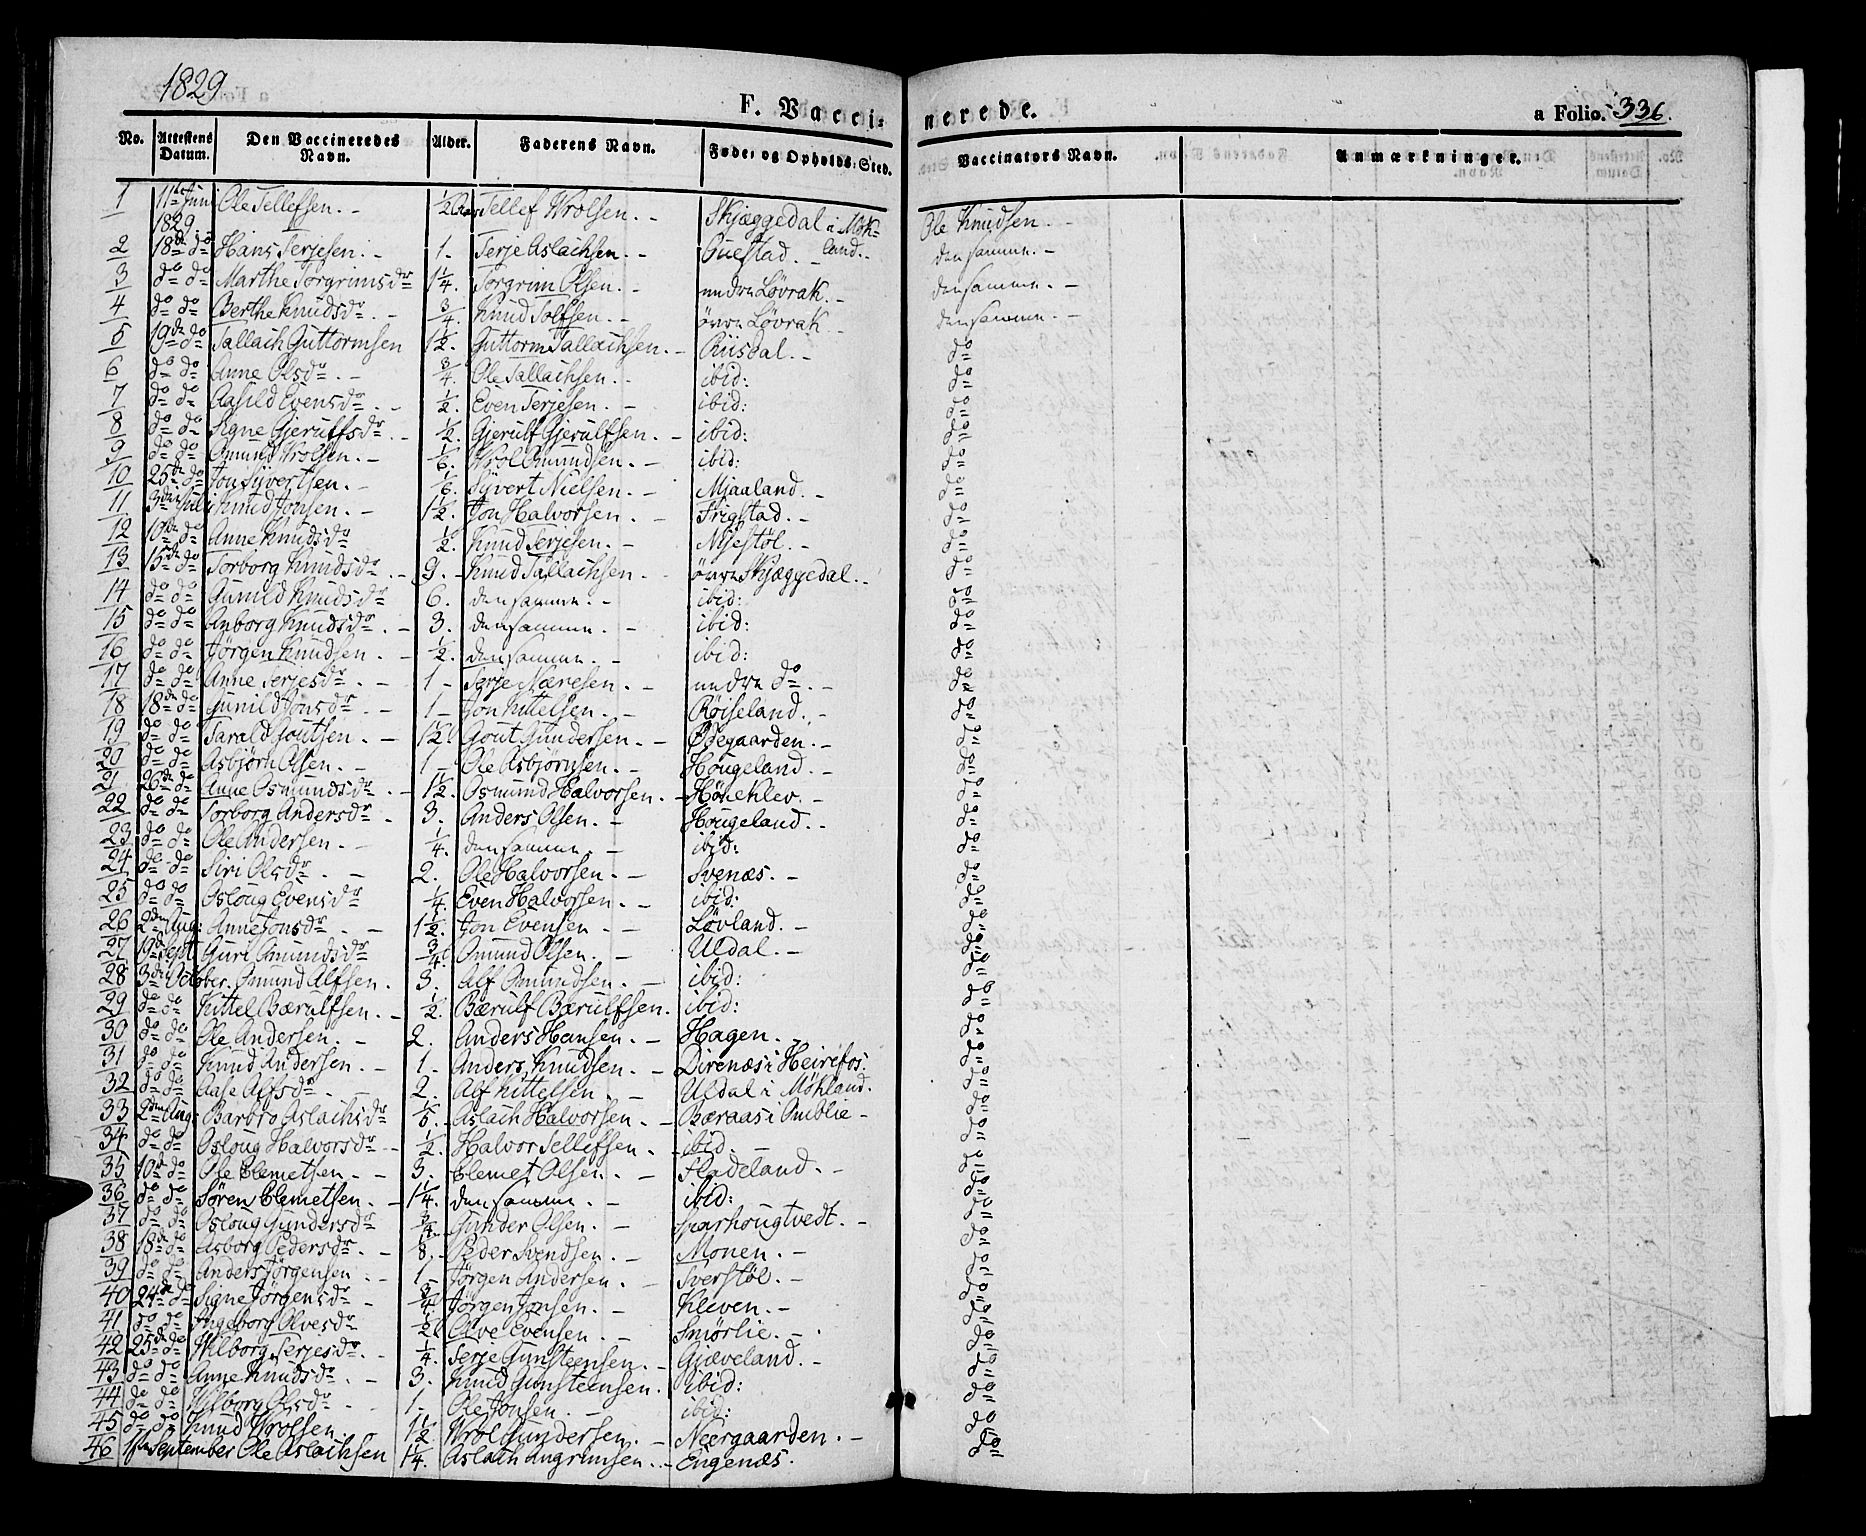 1829
F. Vaccinerede.
a Folio. 336.
No. Attestens Datum. Den Vaccineredes Navn. Alder. Faderens Navn. Føde- og Opholds-Sted. Vaccinators Navn. Anmærkninger.
1 11te Juni 1829 Ole Tellefsen. ½ Aar Tellef Wrolsen. Skjæggedal i Mokland. Ole Knudsen
2 18de do Hans Terjesen. 1. Terje Aslachsen. Questad. densamme.
3 do do Marthe Torgrimsdr 1¼. Torgrim Olsen. nedre Løvrak. densamme.
4 do do Berthe Knudsdr. ¾. Knud Tolfsen. övre Lövrak. densamme.
5 19de do Tallach Guttormsen 1½. Guttorm Tallachsen. Riisdal. do
6 do do Anne Olsdr. ¾. Ole Tallachsen. ibid: do
7 do do Aasild Evensdr. ½. Even Terjesen. ibid: do
8 do do Signe Gjerulfsdr. ½. Gjerulf Gjerulfsen. ibid: do
9 do do Omund Wrolsen. 1/6. Wrol Omundsen. ibid: do
10 25de do Jon Syvertsen. 1/6. Syvert Nielsen. Mjaaland. do
11 3die Juli Knud Jonsen. 1½. Jon Halvorsen. Frigstad. do
12 10de do Anne Knudsdr ½. Knud Terjesen. Mjestöl. do
13 15de do Torborg Knudsdr. 9. Knud Tallachsen. övre Skjæggedal. do
14 do do Gunild Knudsdr 6. densamme. ibid: do
15 do do Anborg Knudsdr. 3. densamme. ibid: do
16 do do Jörgen Knudsen. ½. densamme. ibid: do
17 do do Anne Terjesdr. 1 Terje Næresen. nedre do. do
18 18de do Gunild Jonsdr. 1 Jon Kittelsen. Röiseland. do
19 do do Tarald Goutsen. 1½ Gout Gundersen. Ödegaarden. do
20 do do Asbjörn Olsen. 1 Ole Asbjörnsen. Hougeland. do
21 26de do Anne Osmundsdr. 1½. Osmund Halvorsen. Hönehlev. do
22 do do Torborg Andersdr. 3. Anders Olsen. Hougeland. do
23 do do Ole Andersen. ¼. densamme. ibid: do
24 do do Siri Olsdr. 2. Ole Halvorsen. Svenæs. do
25 do do Osloug Evensdr ¼. Even Halvorsen. ibid: do
26 2den Aug: Anne Jonsdr. 1½. Jon Evensen. Lövland. do
27 19de Sept Guri Omundsdr ¾. Omund Olsen. Uldal. do
28 3die October. Omund Alfsen. 3. Alf Omundsen. ibid: do
29 do do Kittel Bærulfsen. ½. Bærulf Bærulfsen. ibid: do
30 do do Ole Andersen. 2. Anders Hansen. Hagen. do
31 do do Knud Andersen. 1. Anders Knudsen. Direnæs i Heirefos. do
32 do do Aase Alfsdr. 2. Alf Kittelsen. Uldal i Mohland. do
33 2den Aug: Barbro Aslachsdr 1/5. Aslach Halvorsen. Bæraas i Omblie do
34 do do Osloug Halvorsdr. ½ Halvor Tellefsen. ibid. do
35 10de do Ole Clemetsen. 3. Clemet Olsen. Fladeland. do
36 do do Sören Clemetsen. 1¼. densamme. ibid: do
37 do do Osloug Gundersdr ¾ Gunder Olsen. Sparhougtvedt. do
38 18de do Asborg Pedersdr. 8. Peder Svendsen. Monen. do
39 do do Anders Jörgensen. 1 Jörgen Andersen. Sverstöl. do
40 24de do Signe Jörgensdr. ¾ Jörgen Jonsen. Kleven. do
41 do do Ingeborg Olvesdr ½ Olve Evensen. Smörlie. do
42 25de do Wilborg Terjesdr. ¼. Terje Gunsteensen. Gjæveland. do
43 do do Anne Knudsdr. 3. Knud Gunsteensen. ibid: do
44 do do Wilborg Olsdr. 1 Ole Jonsen. ibid: do
45 do do Knud Wrolsen. 1½ Wrol Gundersen. Neergaarden. do
46 September Ole Aslachsen 1¼. Aslach Angrimsen. Eugenæs. do